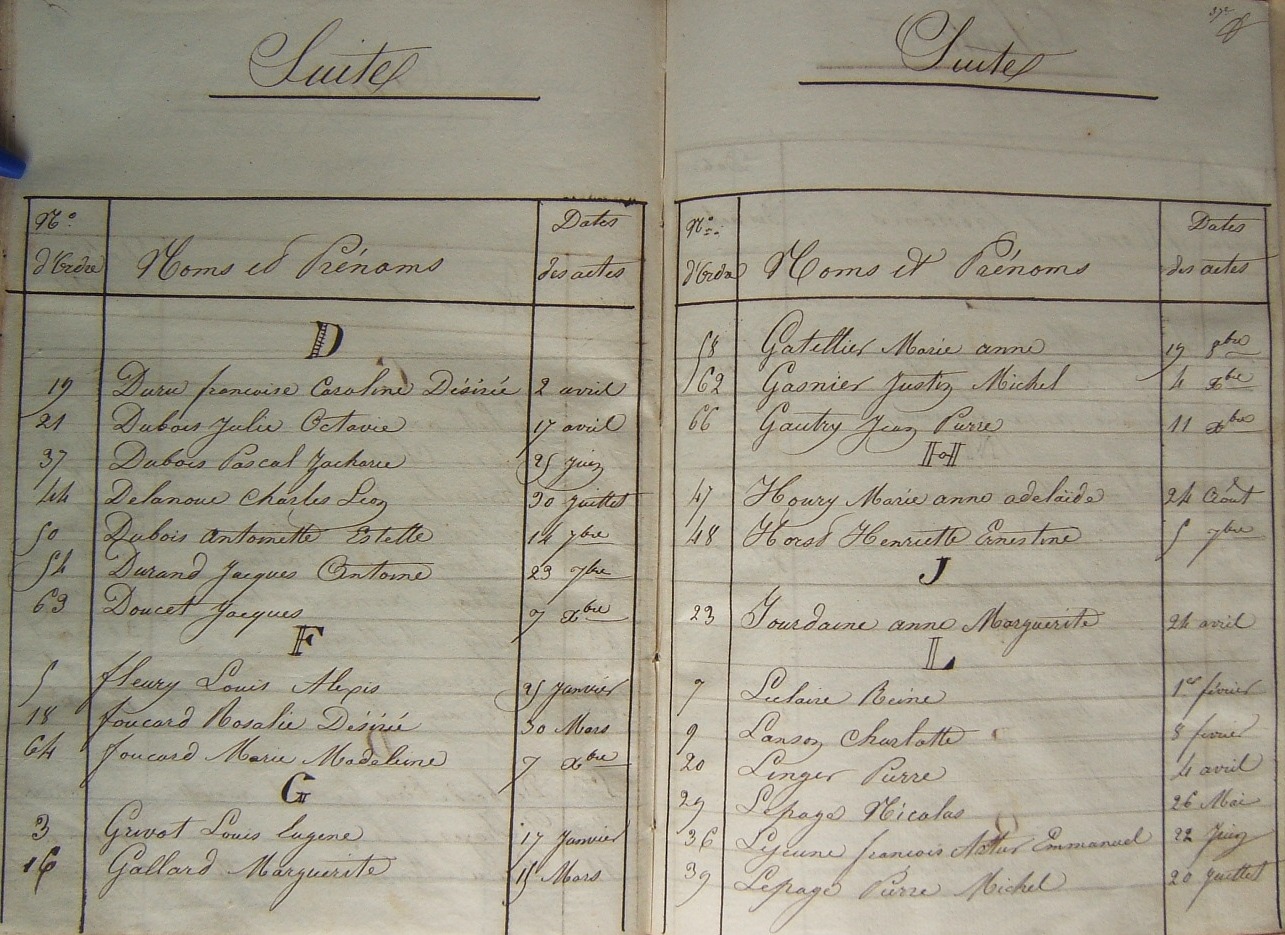 Suite
N.o
d'Ordre Noms et Prénoms Dates
des actes
D
19 Duru françoise Caroline Désirée 2 avril
21 Dubois Julie Octavie 17 avril
37 Dubois Pascal Zacharie 25 Juin
44 Delanoue Charles Léon 30 Juillet
50 Dubois Antoinette Estelle 14 7bre
54 Durand Jacques Antoine 23 7bre
63 Doucet Jacques 7 Xbre
F
5 fleury Louis Alexis 25 Janvier
18 foucard Rosalie Désirée 30 Mars
64 foucard Marie Madeleine 7 Xbre
G
3 Grivot Louis Eugene 17 Janvier
16 Gallard Marguerite 15 Mars
37e
Suite
N.o
d'Ordre Noms et Prénoms Dates
des actes
58 Gatellier Marie anne 19 8bre
62 Gasnier Justin Michel 4 Xbre
66 Gautry Jean Pierre 11 Xbre
H
47 Houry Marie anne adelaïde 24 Août
48 Horst Henriette Ernestine 5 7bre
J
23 Jourdaine anne Marguerite 24 avril
L
7 Leclaire Reine 1er février
9 Lanson Charlotte 8 février
20 Linger Pierre 4 avril
29 Lepage Nicolas 26 Mai
36 Lejeune françois Artur Emmanuel 22 Juin
39 Lepage Pierre Michel 20 Juillet